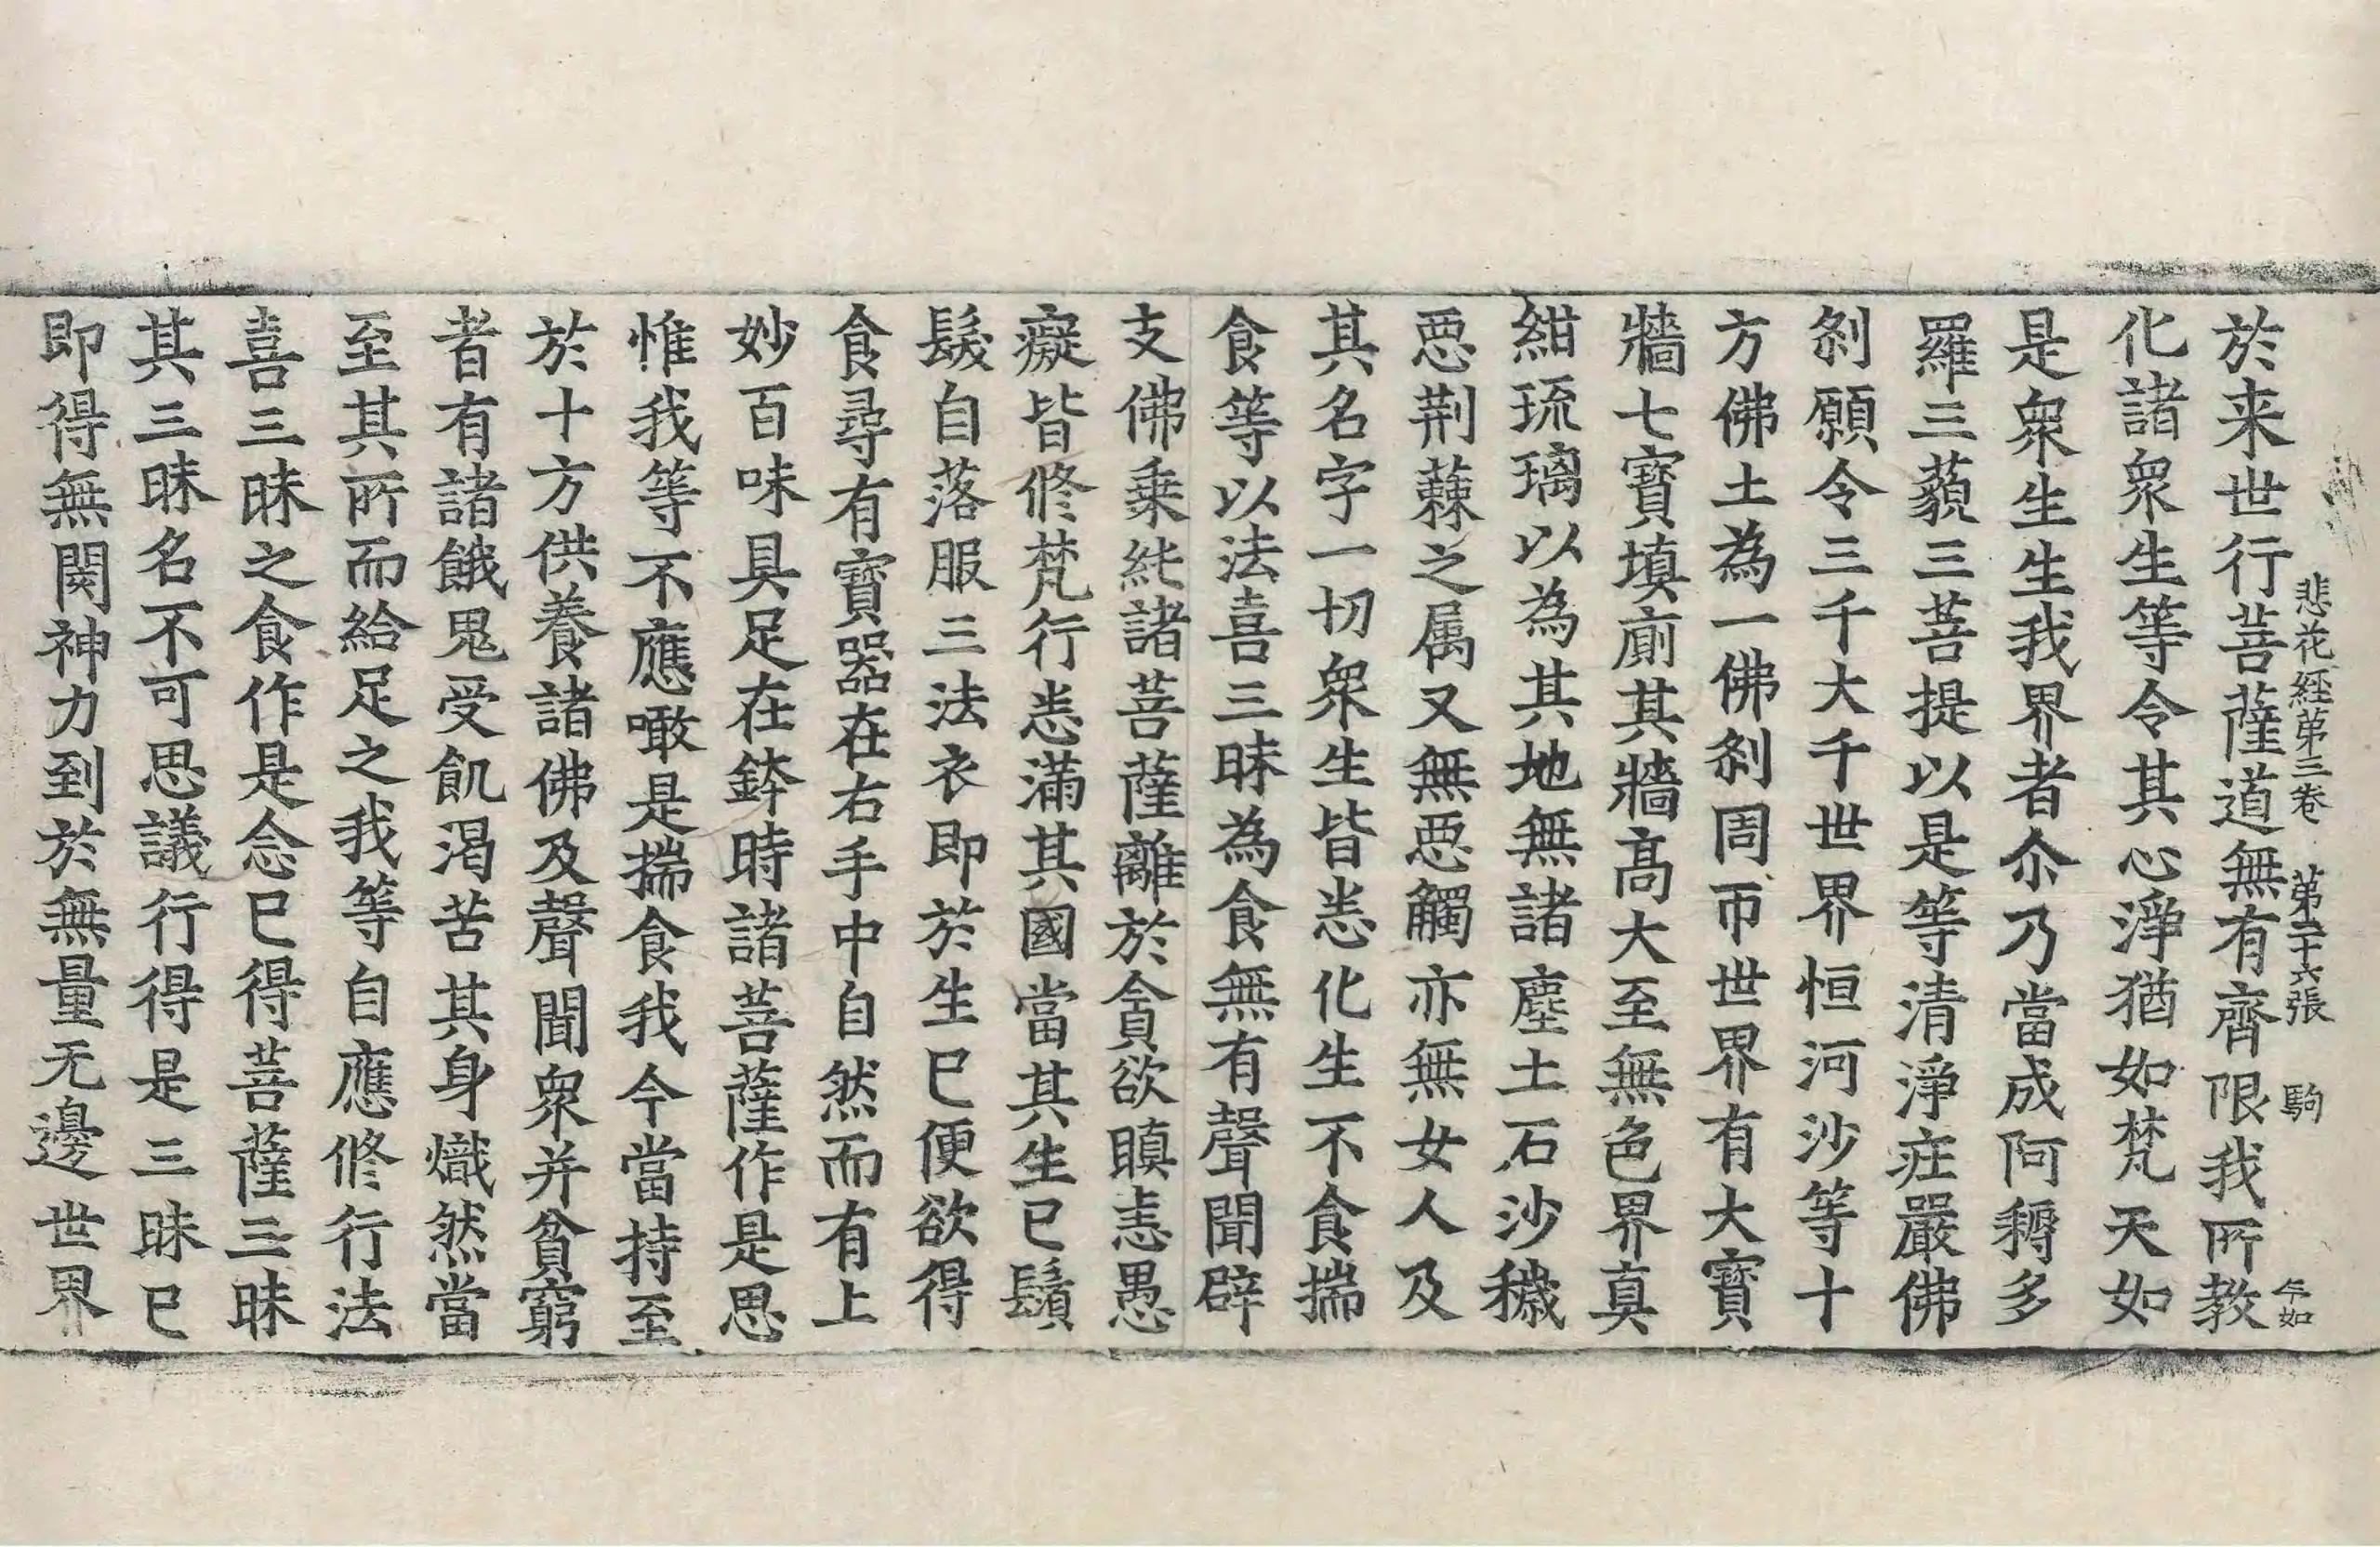 悲花経苐三巻　苐二十六張　駒　午如
於来世行菩薩道無有齊限我所教
化諸衆生等令其心淨猶如梵天如
是衆生生我界者尒乃當成阿耨多
羅三藐三菩提以是等清淨莊嚴佛
剎願令三千大千世界恒河沙等十
方佛土為一佛剎周帀世界有大寶
牆七寶填廁其牆高大至無色界真
紺琉璃以為其地無諸塵土石沙穢
惡荆蕀之属又無惡觸亦無女人及
其名字一切衆生皆悉化生不食揣
食等以法喜三昧為食無有聲聞辟
支佛乗純諸菩薩離於貪欲瞋恚愚
癡皆修梵行悉滿其國當其生已鬚
髮自落服三法衣即於生已便欲得
食尋有寶器在右手中自然而有上
妙百味具足在鉢時諸菩薩作是思
惟我等不應噉是揣食我今當持至
於十方供養諸佛及聲聞衆并貧窮
者有諸餓鬼受飢渇苦其身熾然當
至其所而給足之我等自應修行法
喜三昧之食作是念已得菩薩三昧
其三昧名不可思議行得是三昧已
即得無閡神力到於無量无邊世界